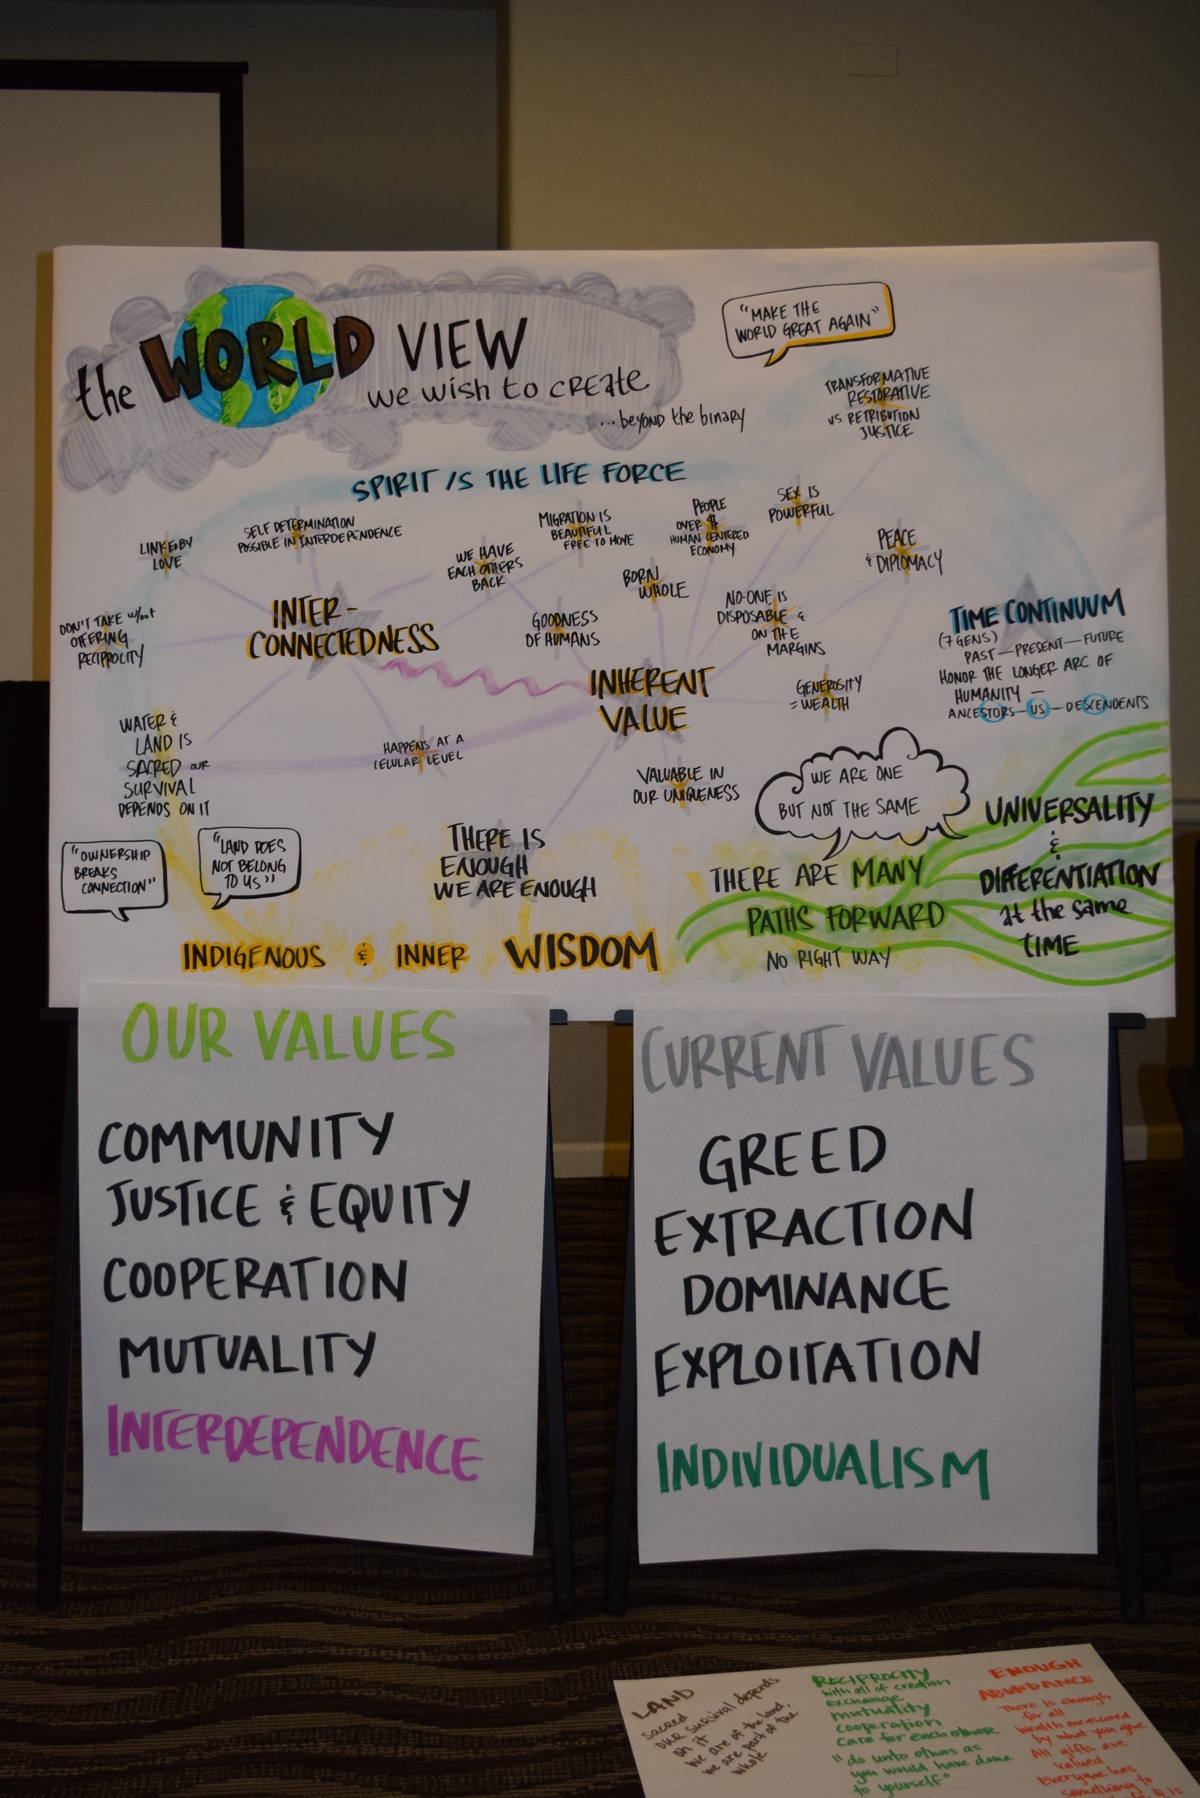 the WORLD VIEW
we wish to create
...beyond the binary
"MAKE THE
WORLD GREAT AGAIN"
TRANSFORMATIVE
RESTORATIVE
VS RETRIBUTION
JUSTICE
SPIRIT IS THE LIFE FORCE
LINKED BY
LOVE
SELF DETERMINATION
POSSIBLE IN INTERDEPENDENCE
WE HAVE
EACH OTHERS
BACK
MIGRATION IS
BEAUTIFUL
FREE TO MOVE
PEOPLE
OVER $
HUMAN CENTERED
ECONOMY
SEX IS
POWERFUL
PEACE
& DIPLOMACY
DON'T TAKE w/out
OFFERING
RECIPROCITY
INTER-
CONNECTEDNESS
GOODNESS
OF HUMANS
BORN
WHOLE
NO-ONE IS
DISPOSABLE &
ON THE
MARGINS
INHERENT
VALUE
GENEROSITY
= WEALTH
TIME CONTINUUM
(7 GENS)
PAST — PRESENT — FUTURE
HONOR THE LONGER ARC OF
HUMANITY —
ANCESTORS — US — DESCENDENTS
WATER &
LAND IS
SACRED OUR
SURVIVAL
DEPENDS ON IT
HAPPENS AT A
CELULAR LEVEL
VALUABLE IN
OUR UNIQUENESS
WE ARE ONE
BUT NOT THE SAME
"OWNERSHIP
BREAKS
CONNECTION"
"LAND DOES
NOT BELONG
TO US"
THERE IS
ENOUGH
WE ARE ENOUGH
THERE ARE MANY
PATHS FORWARD
NO RIGHT WAY
UNIVERSALITY
&
DIFFERENTIATION
at the same
TIME
INDIGENOUS & INNER WISDOM
OUR VALUES
COMMUNITY
JUSTICE & EQUITY
COOPERATION
MUTUALITY
INTERDEPENDENCE
CURRENT VALUES
GREED
EXTRACTION
DOMINANCE
EXPLOITATION
INDIVIDUALISM
LAND
sacred
our survival depends
on it
we are of the land,
we are part of the
whole
RECIPROCITY
with all of creation
exchange
mutuality
cooperation
care for each other
"do unto others as
you would have done
to yourself"
ENOUGH
ABUNDANCE
There is enough
for all
wealth measured
by what you give
All gifts are
valued
Everyone has
something to